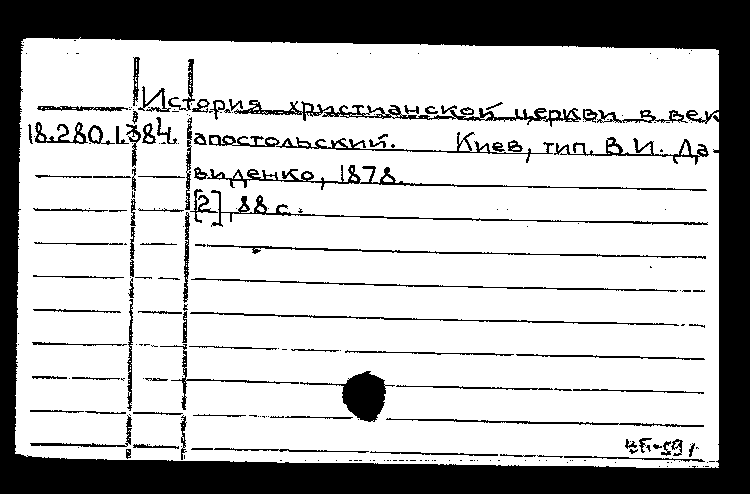 История христианской церкви в век
18.280.1.384. апостольский. Киев, тип. В.И. Да-
виденко, 1878.
[2], 88 с.